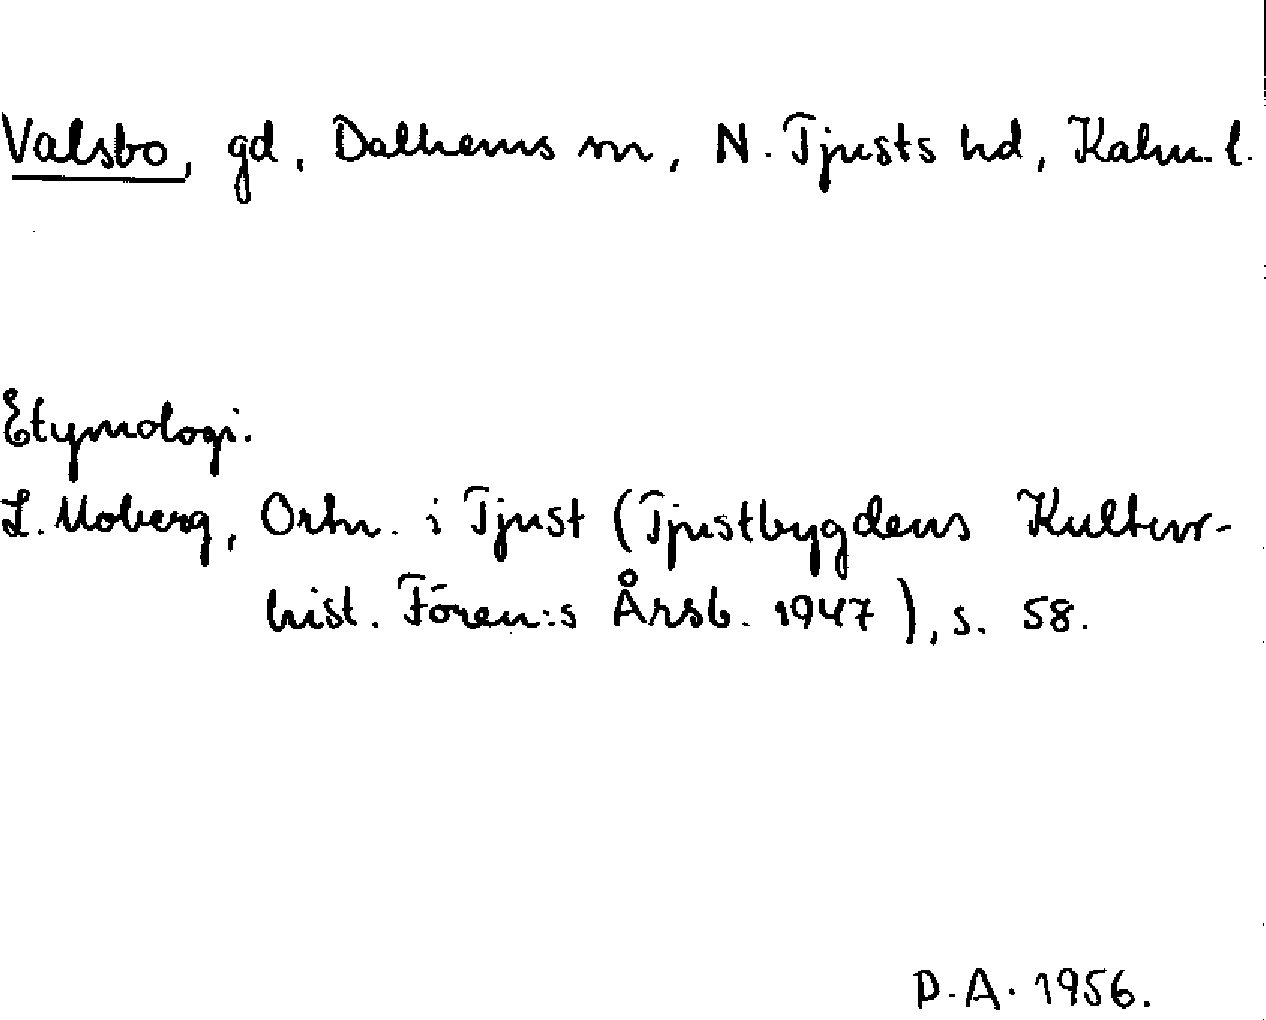 Valsbo, gd, Dalhems sn, N. Tjusts hd, Kalm. l.
Etymologi.
L. Moberg, Ortn. i Tjust (Tjustbygdens Kultur-
hist. Fören:s Årsb. 1947), s. 58.
D.A. 1956.